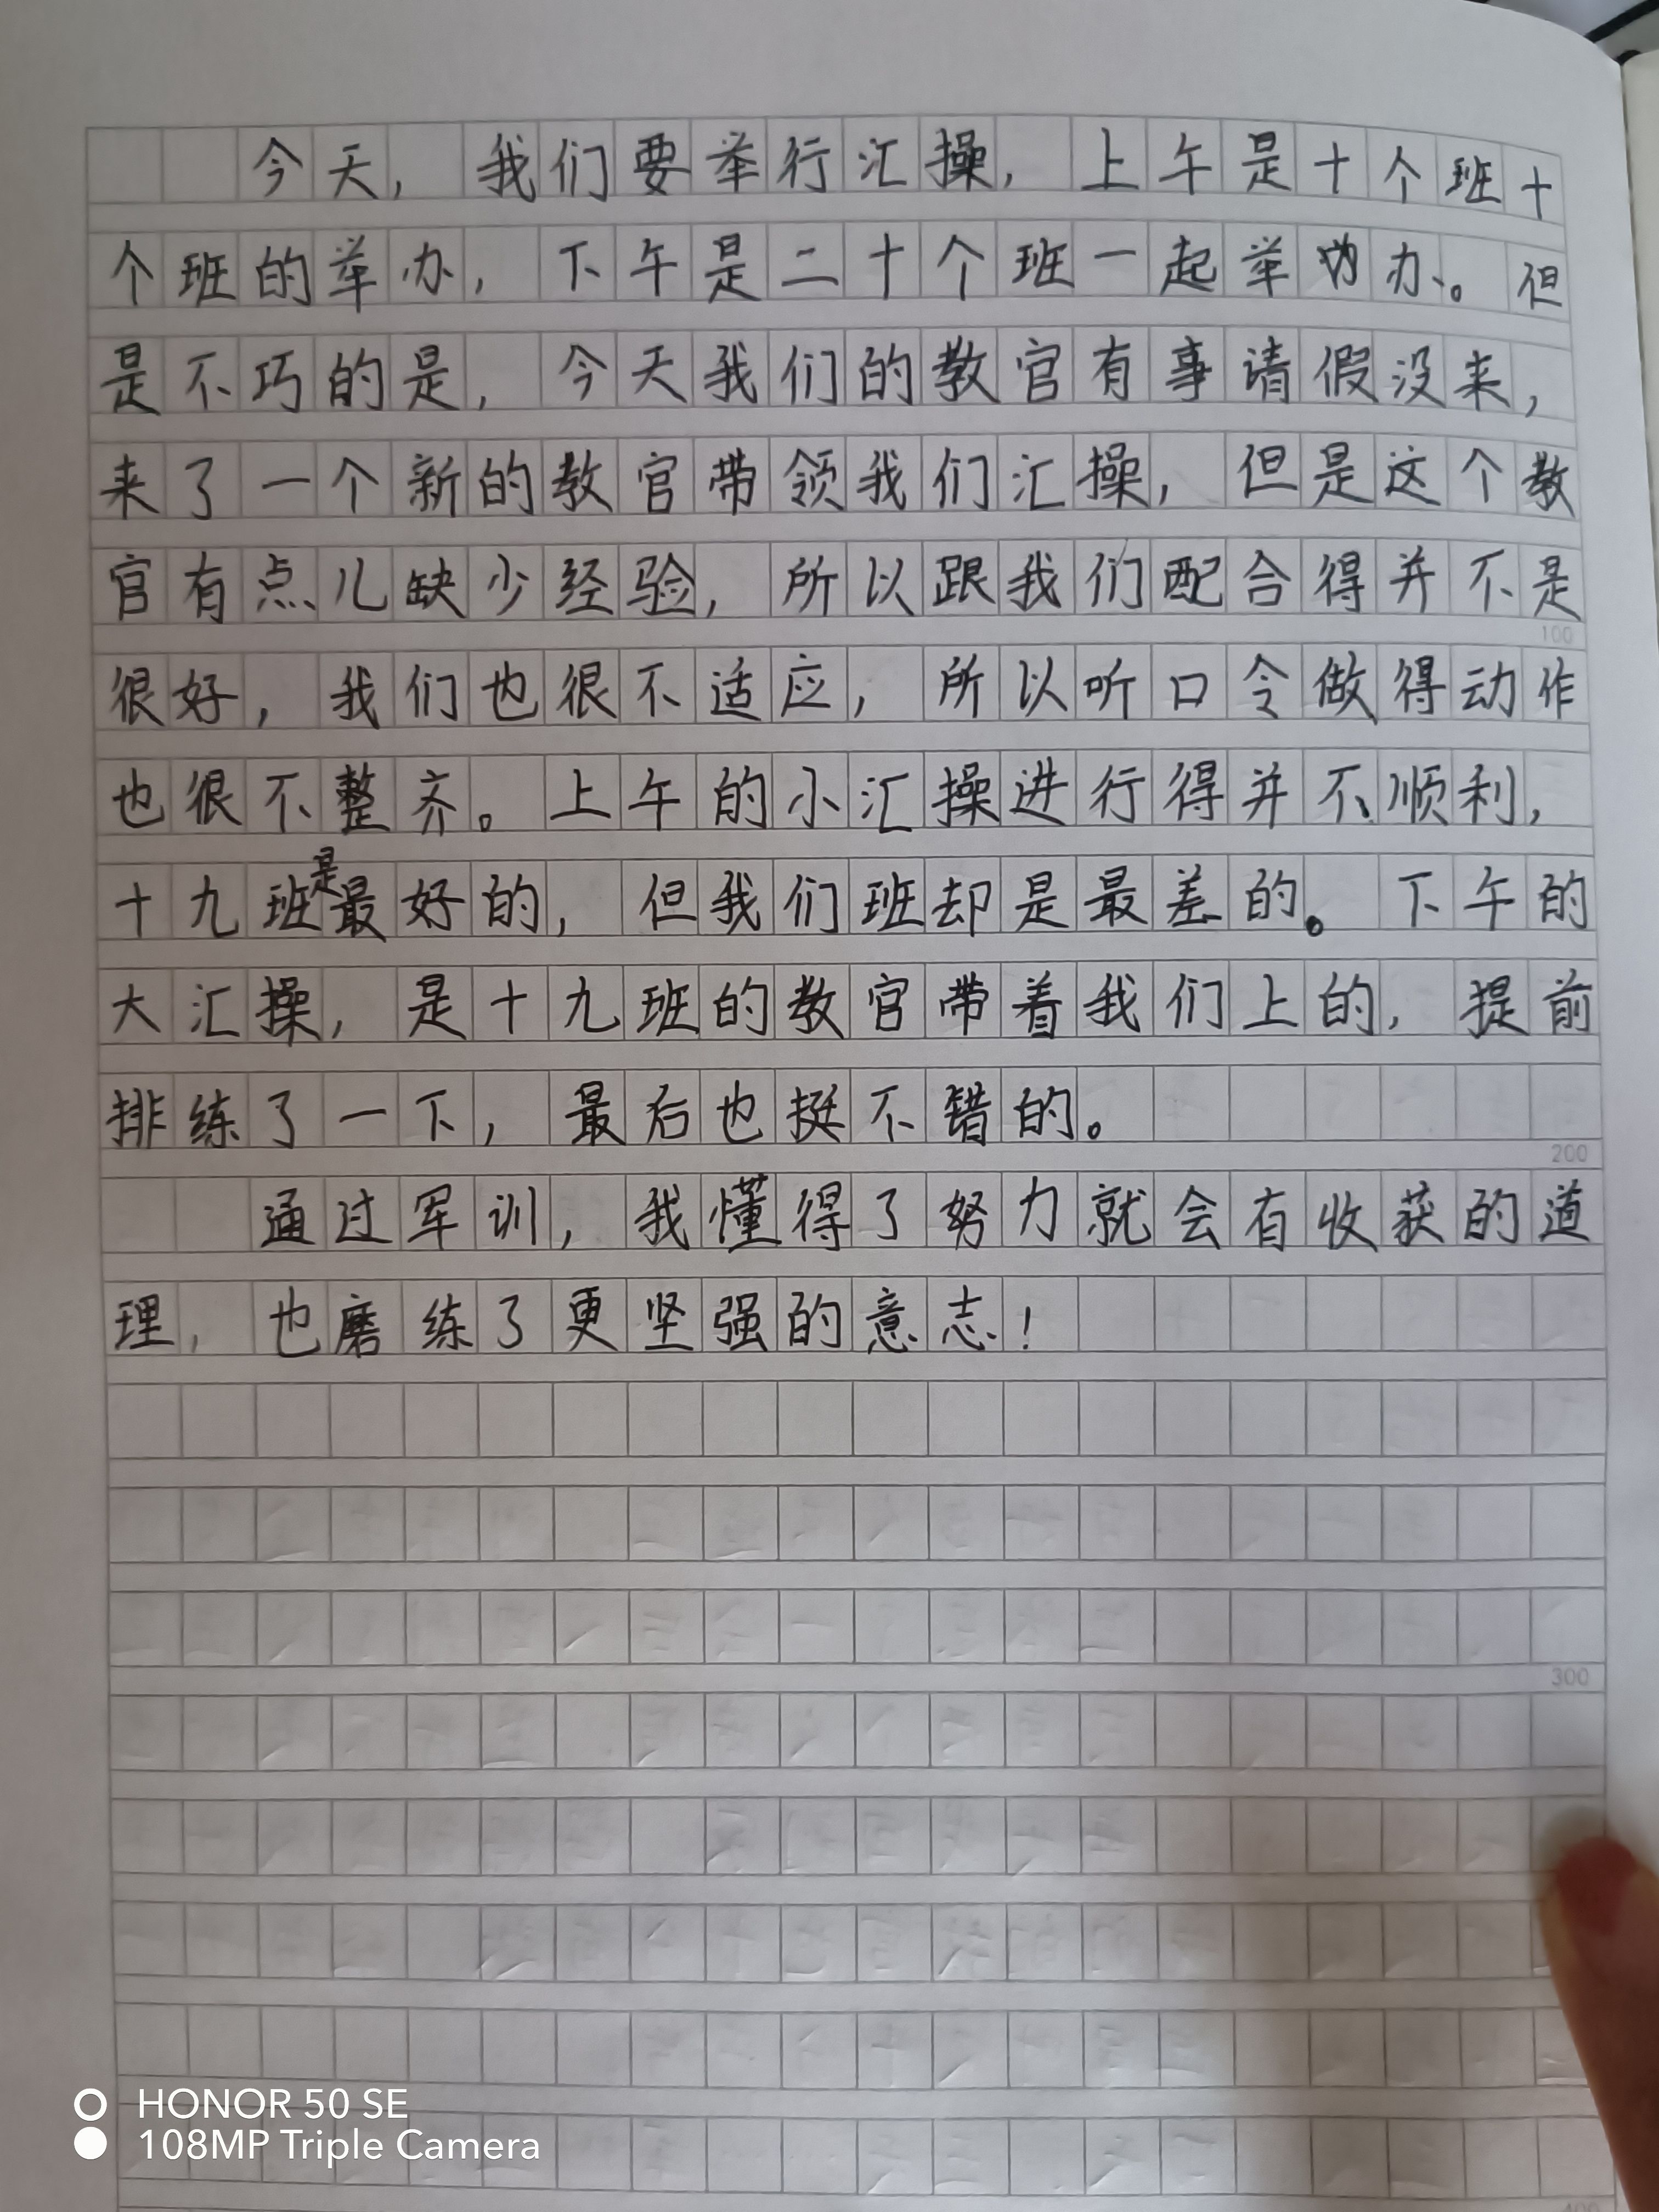 今天，我们要举行汇操，上午是十个班十
个班的举办，下午是二十个班一起举办。但
是不巧的是，今天我们的教官有事请假没来，
来了一个新的教官带领我们汇操，但是这个教
官有点儿缺少经验，所以跟我们配合得并不是
100
很好，我们也很不适应，所以听口令做得动作
也很不整齐。上午的小汇操进行得并不顺利，
十九班是最好的，但我们班却是最差的。下午的
大汇操，是十九班的教官带着我们上的，提前
排练了一下，最后也挺不错的。
200
通过军训，我懂得了努力就会有收获的道
理，也磨练了更坚强的意志！
300
HONOR 50 SE
108MP Triple Camera